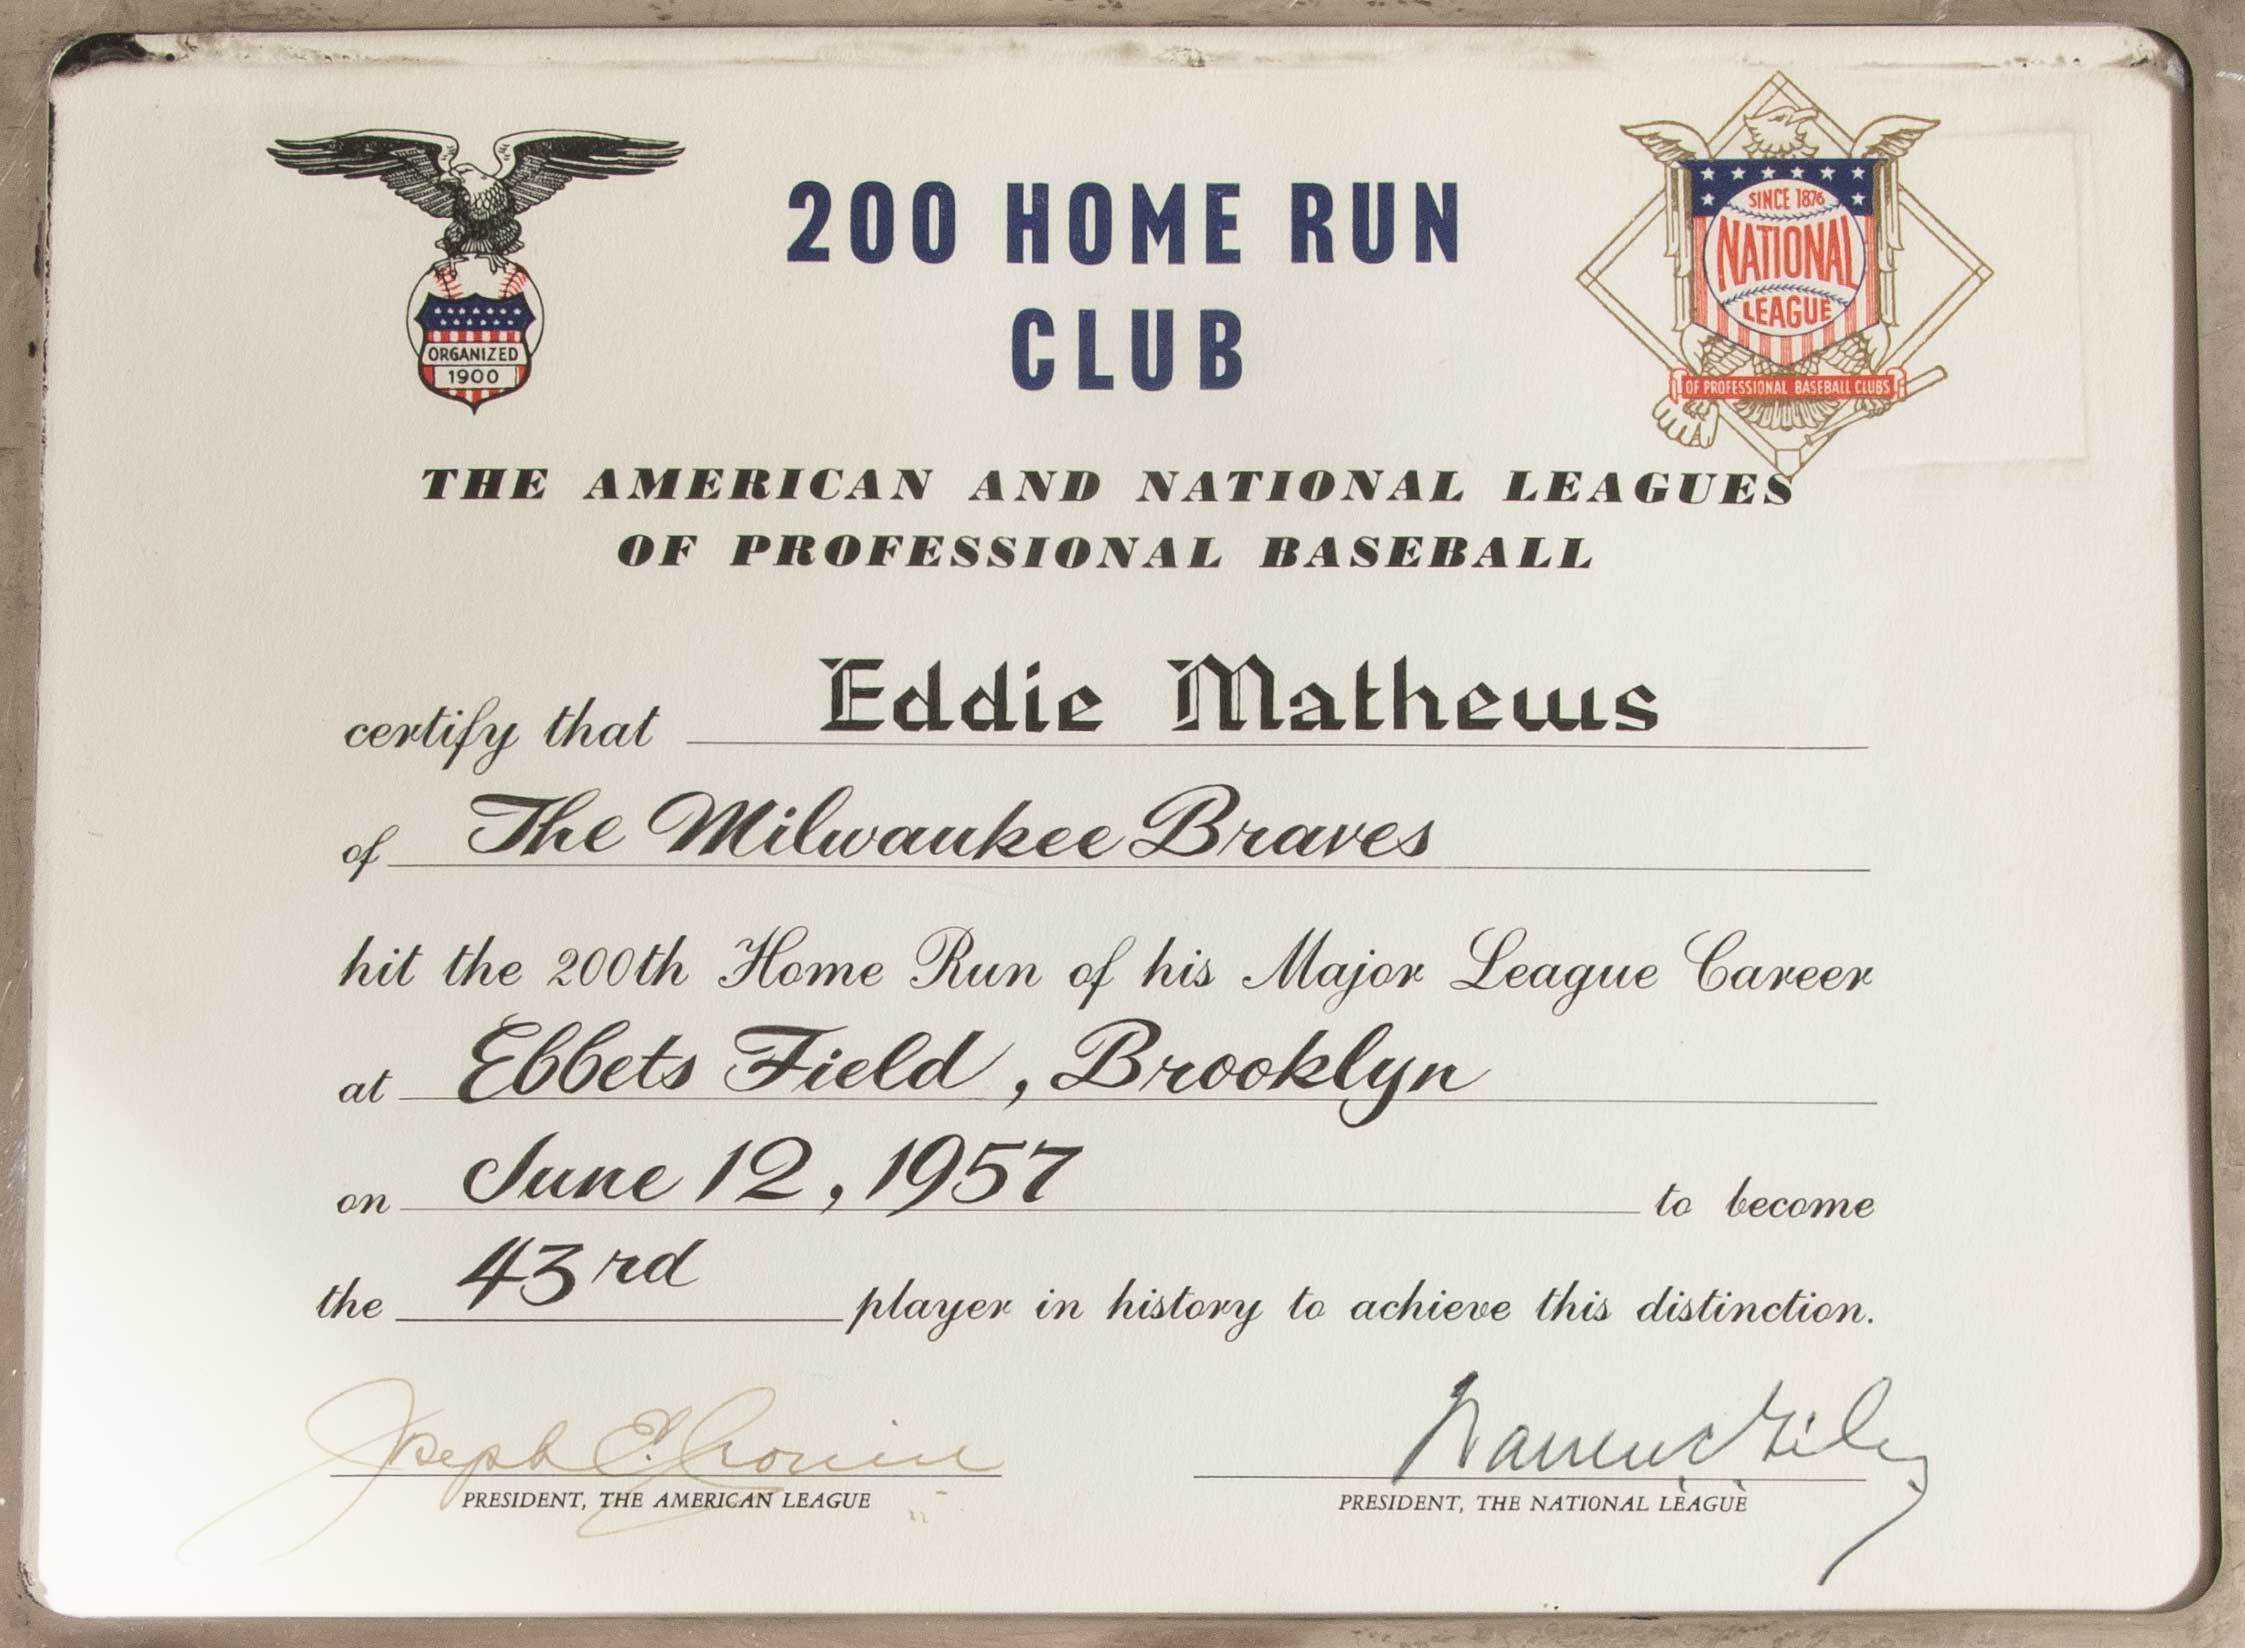 200 HOME RUN
CLUB
ORGANIZED
1900
SINCE 1876
NATIONAL
LEAGUE
OF PROFESSIONAL BASEBALL CLUBS
THE AMERICAN AND NATIONAL LEAGUES
OF PROFESSIONAL BASEBALL
certify that Eddie Mathews
of The Milwaukee Braves
hit the 200th Home Run of his Major League Career
at Ebbets Field, Brooklyn
on June 12, 1957 to become
the 43rd player in history to achieve this distinction.
Joseph E. Cronin
PRESIDENT, THE AMERICAN LEAGUE
Warren C Giles
PRESIDENT, THE NATIONAL LEAGUE